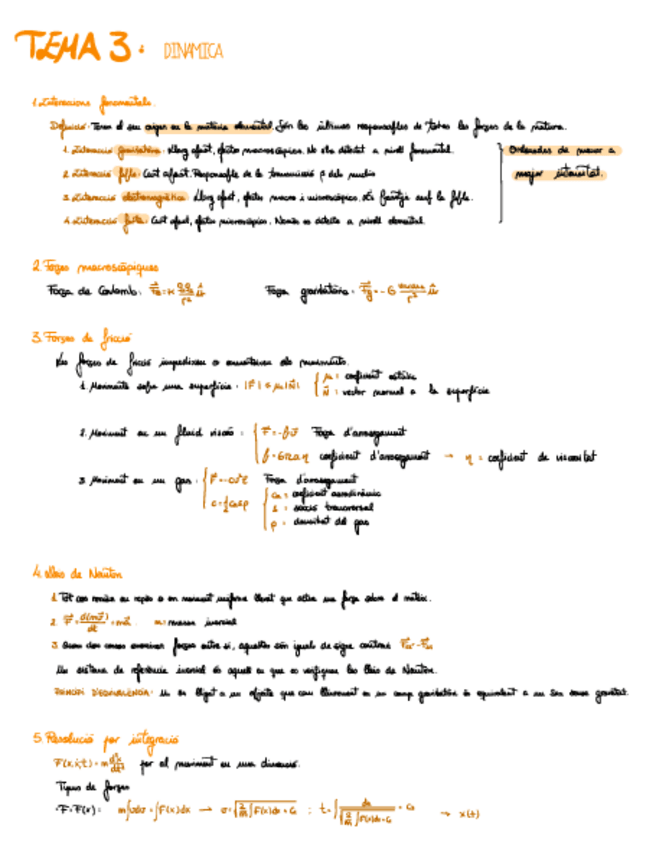 TEMA 3: DINAMICA
1. Interaccions fonamentals.
Definició: Tenen el seu origen en la matèria elemental. Són les últimes responsables de totes les forces de la natura.
1. Interacció gravitatòria: Llarg abast, efectes macroscòpics. No s'ha detectat a nivell fonamental.
2. Interacció feble: Curt abast. Responsable de la β dels nuclis
3. Interacció electromagnètica: Llarg abast, efectes macro i microscòpics. amb la feble.
4. Interacció forta: Curt abast, efectes microscòpics. Només es detecta a nivell elemental.
Ordenades de menor a
major intensitat.
2. Forces macroscòpiques
Força de Coulomb: Força gravitatòria:
3. Forces de fricció
Les forces de fricció impedeixen o els moviments.
1. Moviments sobre una superfície: |F| ≤ μ|N| { μ: coeficient estàtic
N: vector normal a la superfície
2. Moviment en un fluid viscós: { F = -βv Força d'arrossegament
β = 6πaη coeficient d'arrossegament → η = coeficient de viscositat
3. Moviment en un gas: Força d'arrossegament
coeficient aerodinàmic
s: secció transversal
ρ: densitat del gas
4. Lleis de Newton
1. Tot cos roman en repòs o en moviment uniforme llevat que actue una força sobre el mateix.
2. F = d(mv)/dt = ma m: massa inercial
3. Quan dos cossos exerceixen forces entre si, aquestes són iguals de signe contrari
Un sistema de referència inercial és aquell en que es verifiquen les lleis de Newton.
PRINCIPI D'EQUIVALÈNCIA: Un SR lligat a un objecte que cau lliurement en un camp gravitatòri és equivalent a un sense gravetat.
5. Resolució per integració
F(x,ẋ,t) = m d²x/dt² per al moviment en una dimensió.
Tipus de forces
F = F(x): m∫vdv = ∫F(x)dx → → x(t)